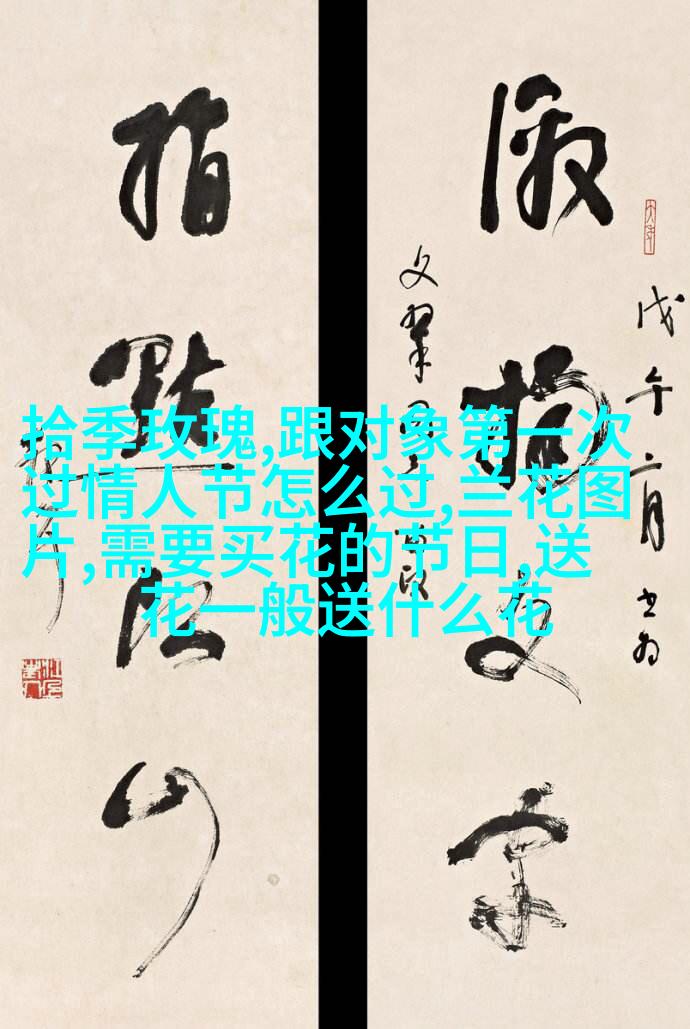 激揚文字
戊午二月书为
指點江山
拾季玫瑰,跟对象第一次
过情人节怎么过,兰花图
片,需要买花的节日,送
花一般送什么花